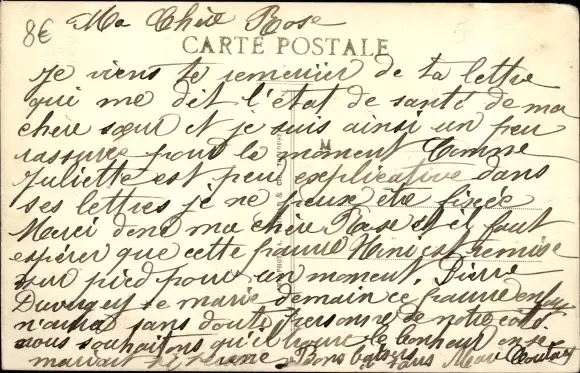 8€
Ma Chère Rose
CARTE POSTALE
Je viens te remercier de ta lettre
qui me dit l'état de santé de ma
chère sœur et je suis ainsi un peu
rassurée pour le moment Comme
Juliette est peu explicative dans
ses lettres je ne peux être fixée
Merci donc ma chère Rose et il faut
espérer que cette pauvre Nini est remise
sur pied pour un moment. Pierre
Duvergey se marie demain ce pauvre
n'aura sans doute personne de notre côté.
nous souhaitons qu'il trouve le bonheur en se
mariant Bons baisers